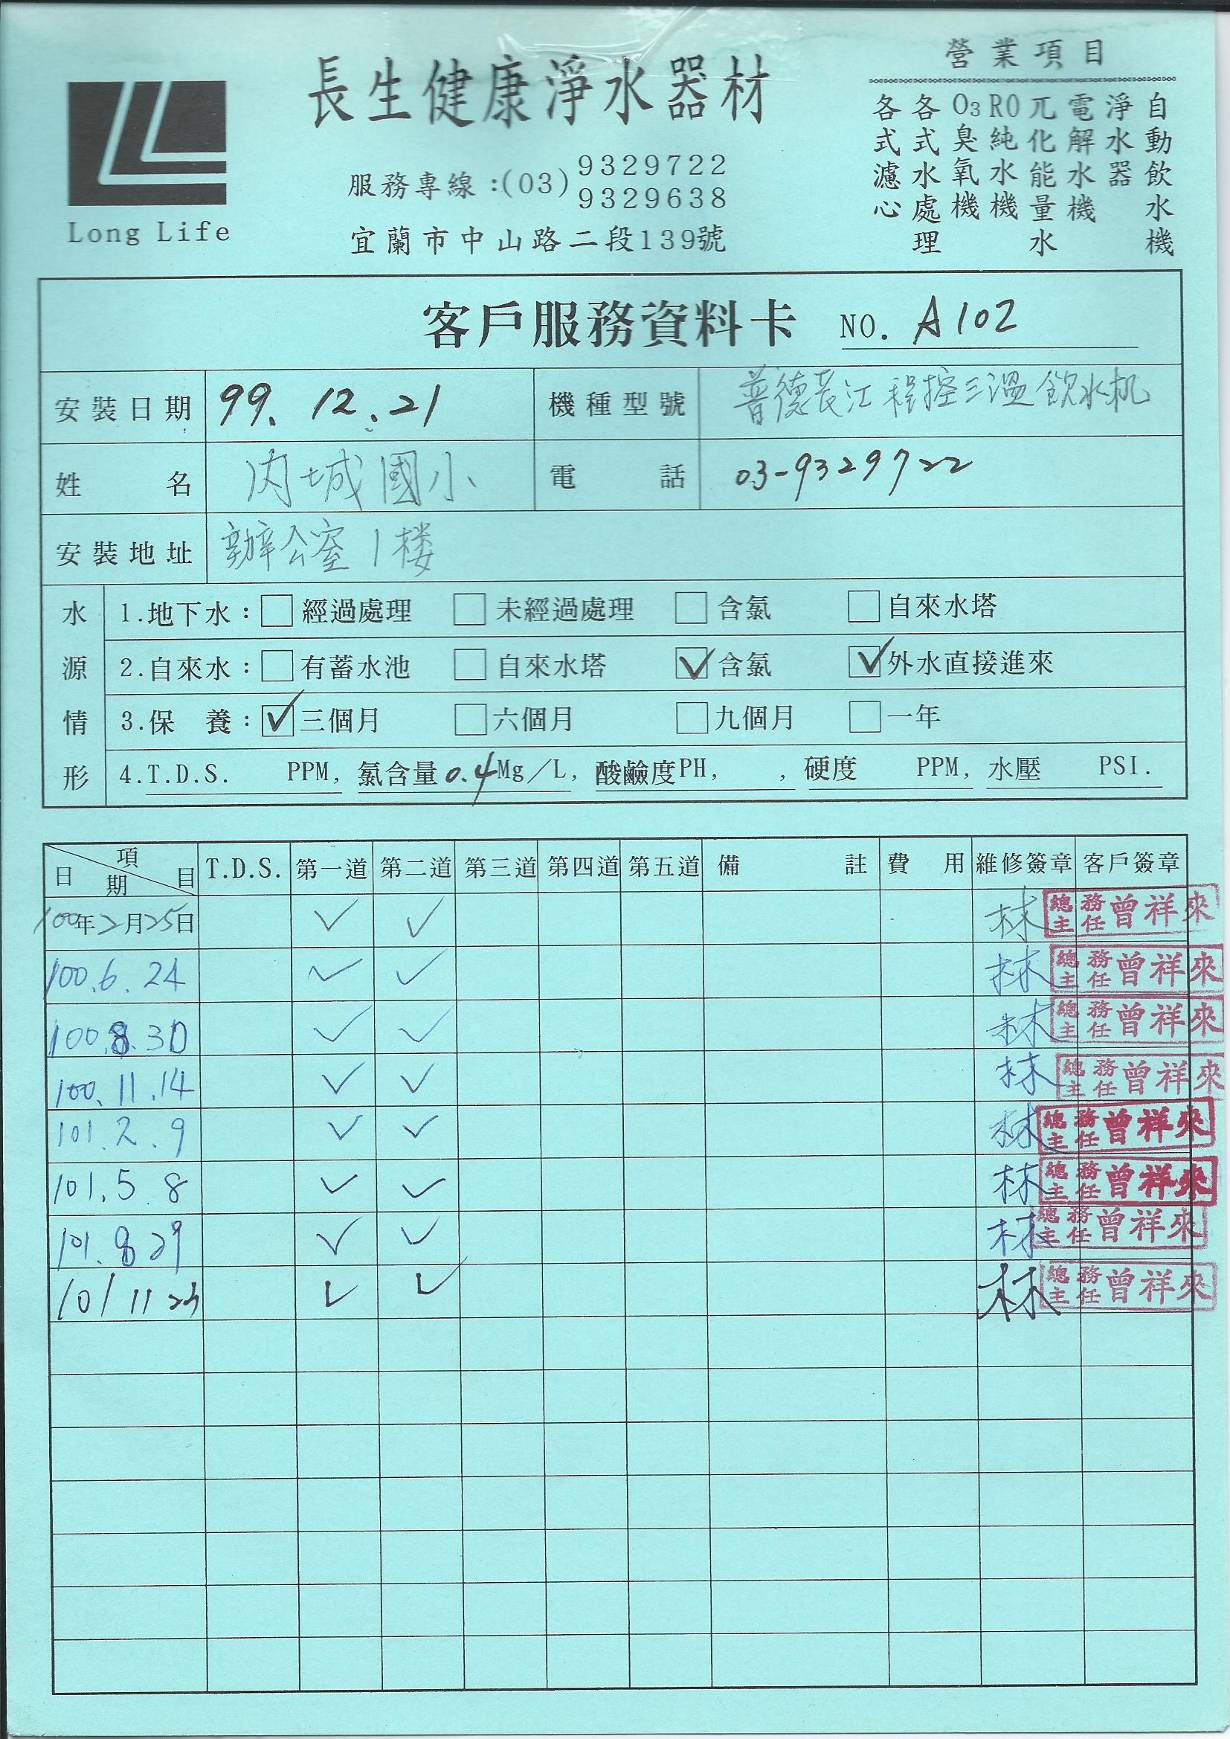 長生健康淨水器材
Long Life
服務專線:(03) 9329722
9329638
宜蘭市中山路二段139號
營業項目
自動飲水機
淨水器
電解水機
兀化能量水
RO純水機
O3臭氧機
各式水處理
各式濾心
客戶服務資料卡 NO. A102
安裝日期 99.12.21 機種型號 普德長江程控三溫飲水机
姓名 內城國小 電話 03-9329722
安裝地址 辦公室1楼
水源情形
1.地下水: □經過處理 □未經過處理 □含氯 □自來水塔
2.自來水: □有蓄水池 □自來水塔 ☑含氯 ☑外水直接進來
3.保養: ☑三個月 □六個月 □九個月 □一年
4.T.D.S. PPM, 氯含量0.4Mg/L, 酸鹼度PH, , 硬度 PPM, 水壓 PSI.
項目 日期 T.D.S. 第一道 第二道 第三道 第四道 第五道 備註 費用 維修簽章 客戶簽章
100年2月25日 ✓ ✓ 林 總務主任曾祥來
100.6.24 ✓ ✓ 林 總務主任曾祥來
100.8.30 ✓ ✓ 林 總務主任曾祥來
100.11.14 ✓ ✓ 林 總務主任曾祥來
101.2.9 ✓ ✓ 林 總務主任曾祥來
101.5 8 ✓ ✓ 林 總務主任曾祥來
101.8 29 ✓ ✓ 林 總務主任曾祥來
101/11 ✓ ✓ 林 總務主任曾祥來